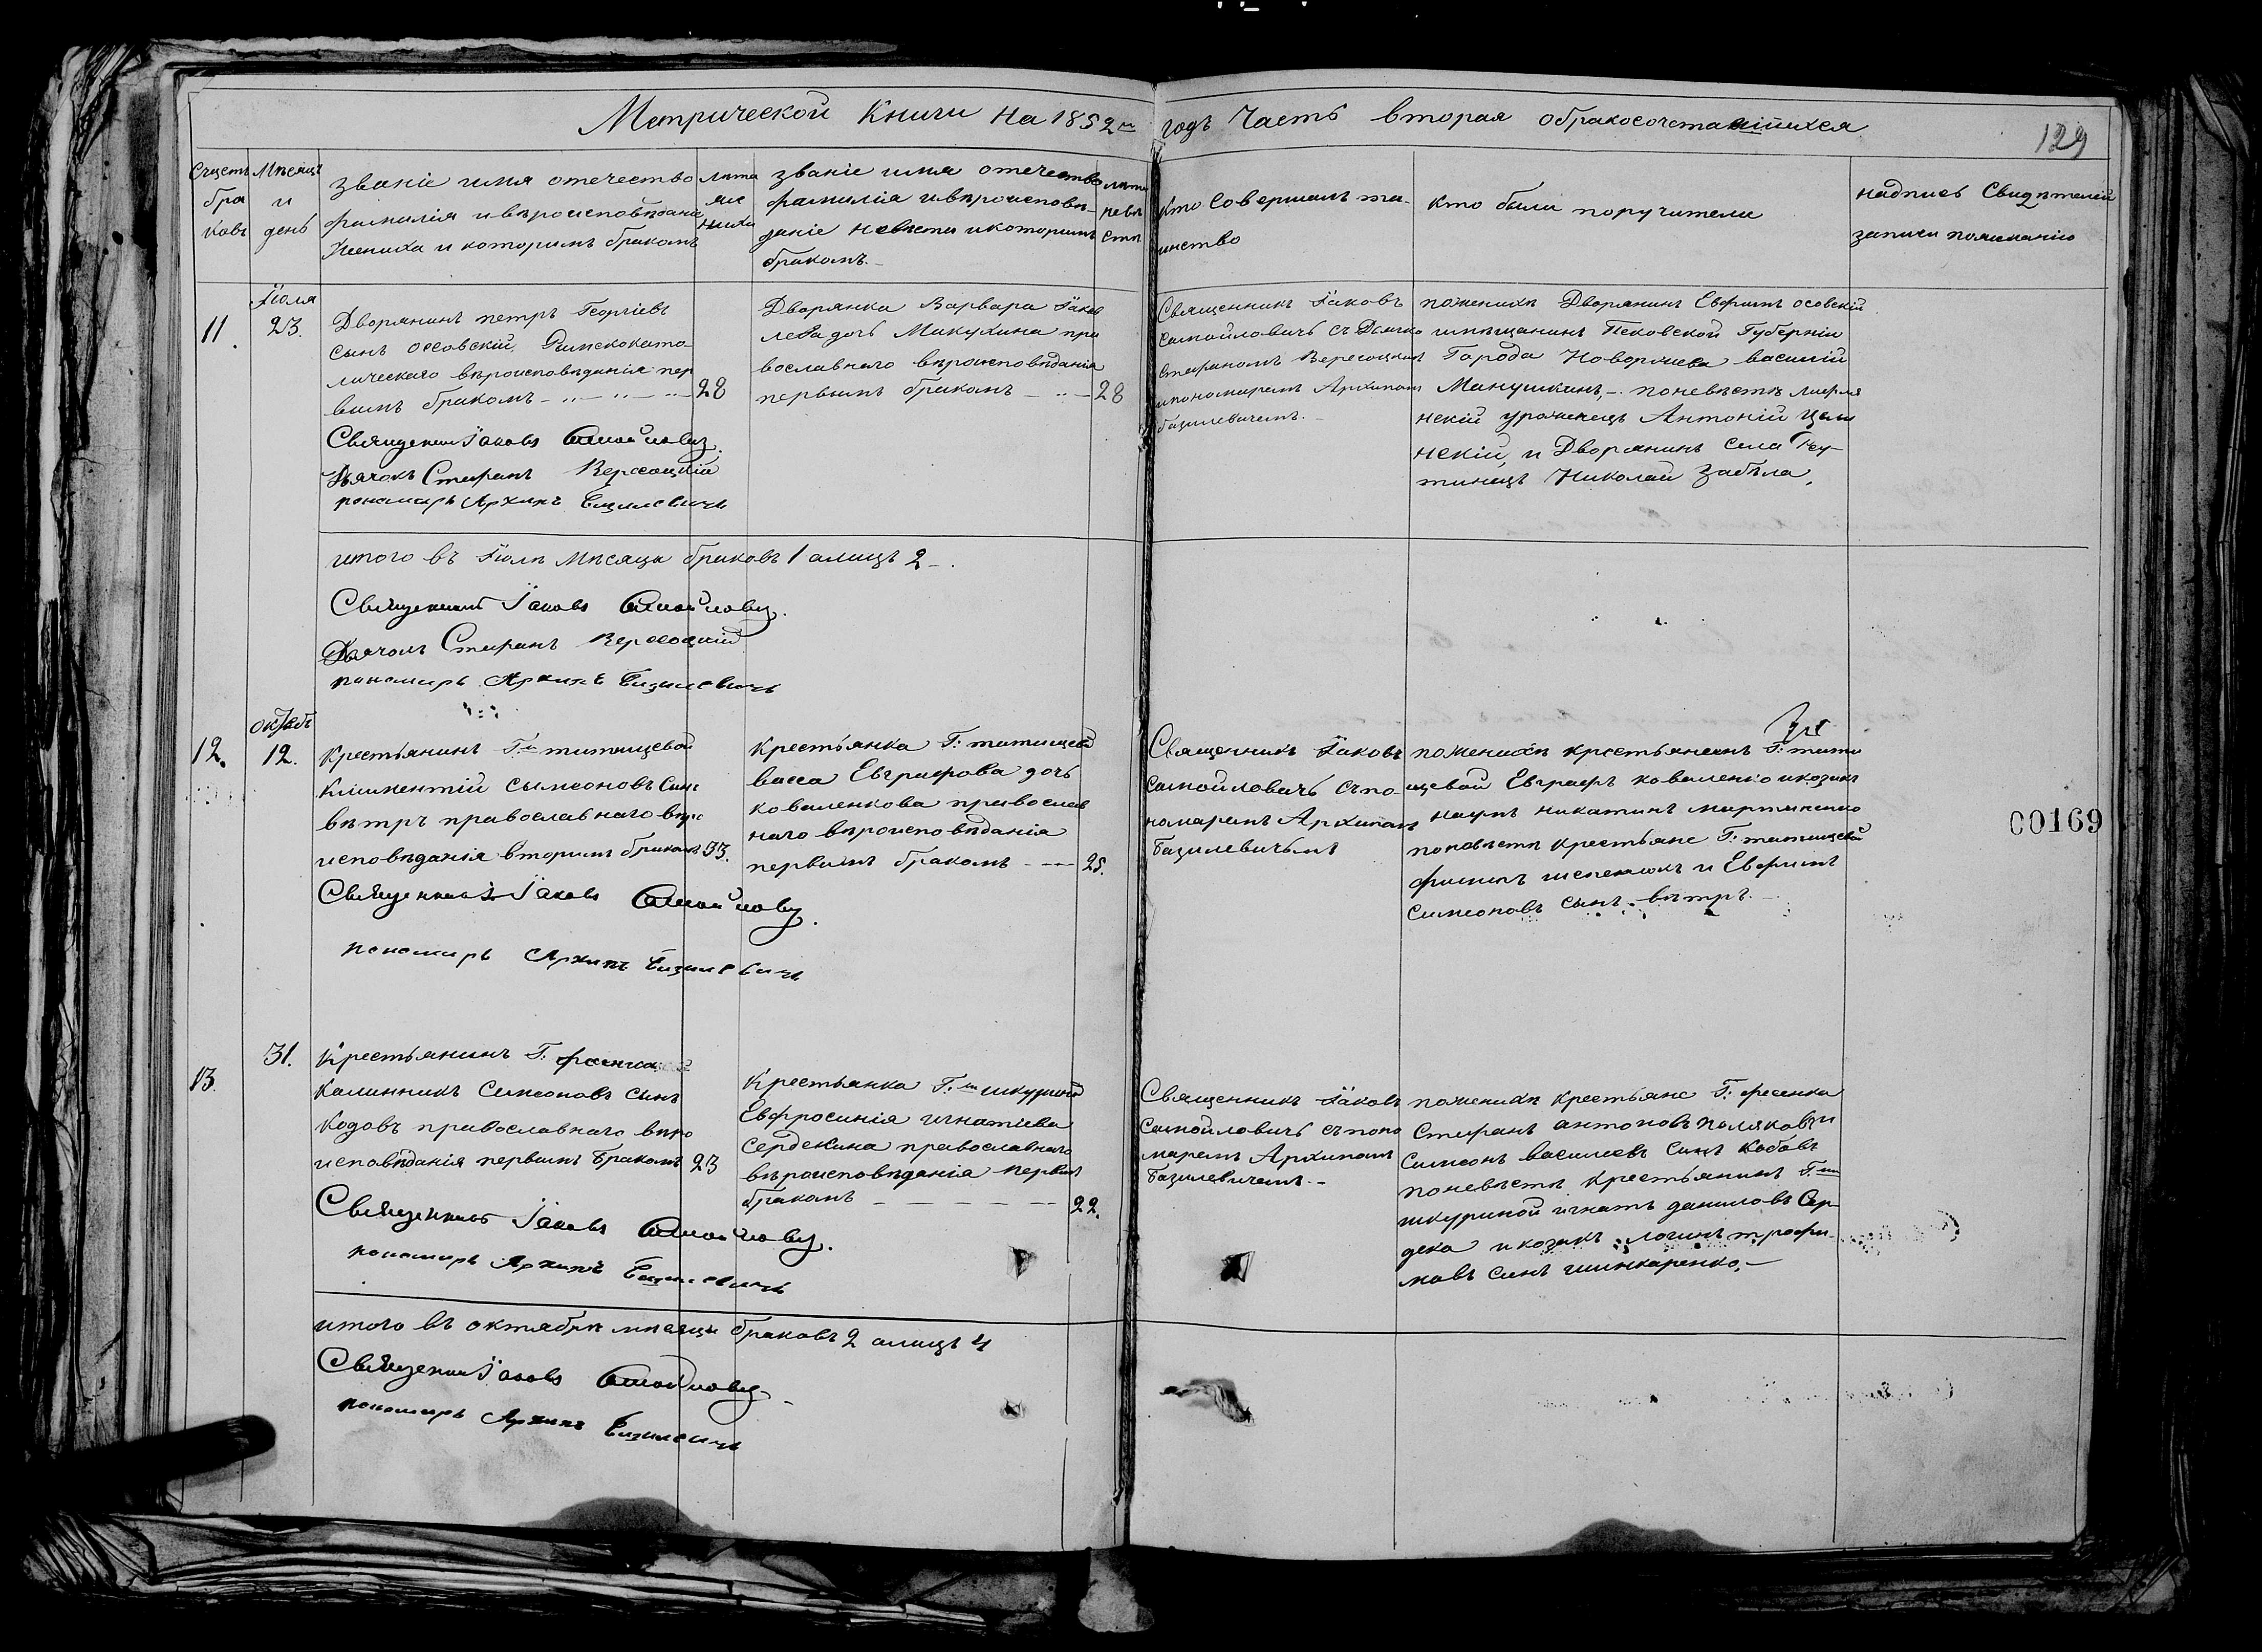 Метрической Книги на 1852й годъ Часть вторая обракосочетавшихся
129
Счетъ браковъ
Мѣсяцъ и день
званіе имя отечество
фамилія ивѣроисповѣданіе
Жениха и которимъ бракомъ
лѣта жениха
званіе имя отечество
фамилія ивѣроисповѣ-
даніе невѣсти икоторимъ
бракомъ.
лѣта невѣсти
Кто Совершалъ та-
инство
Кто были поручители
надпись Свидѣтелей
записи пожеланію
11.
Іюля
23.
Дворянинъ петръ Георгіевъ
сынъ оссовскій, Римскокато-
лическаго вѣроисповѣданія пер
вимъ бракомъ
28
Священникъ Іаковъ Самойловичъ
Дячокъ Стефанъ Вересоцкій
пономарь Архипъ Базилевичъ
Дворянка Варвара Іаков
лева дочь Макухина пра
вославнаго вѣроисповѣданія
первимъ бракомъ
28
Священникъ Іаковъ
Самойловичъ съ Дячко
Стефаномъ Вересоцкимъ
ипономаремъ Архипомъ
базилевичемъ.
поженихѣ Дворянинъ Евфимъ осовскій
имѣщанинъ Псковской Губерніи
Города Новоржева василій
Манушкинъ,-. поневѣстѣ
нскій уроженецъ Антоній
нскій, и Дворянинъ села
тинецъ Николай Забѣла,
итого въ Іюлѣ Мѣсяцѣ браковъ 1 алицъ 2-.
Священникъ Іаковъ Самойловичъ.
Дячокъ Стефанъ Вересоцкій
пономарь Архипъ Базилевичъ
12.
октяб
12.
Крестьянинъ Г:и титищевой
Климентій сымеоновъ Сынъ
вѣтръ православнаго вѣро
исповѣданія вторимъ бракомъ
33.
Священникъ Іаковъ Самойловичъ.
пономарь Архипъ Базилевичъ
Крестьянка Г: титищевой
васса Евграфова дочь
коваленкова православ
наго вѣроисповѣданія
первимъ бракомъ
25.
Священникъ Іаковъ
Самойловичъ съпо-
номаремъ Архипомъ
Базилевичемъ
поженихѣ крестьянинъ Г: тити
щевой Евграфъ коваленко икозакъ
наумъ никитинъ мартиненко
поневѣстѣ крестьяне Г: титищевой
филипъ шепелюкъ и Евфимъ
Симеоновъ сынъ вѣтръ.
00169
13.
31.
Крестьянинъ Г: фесенка
Калинникъ Симеоновъ сынъ
Кодовъ православнаго вѣро
исповѣданія первимъ бракомъ
23
Священникъ Іаковъ Самойловичъ.
пономарь Архипъ Базилевичъ
Крестьянка Г:и шкуриной
Евфросинія игнатіева
Сердекина православнаго
вѣроисповѣданія первимъ
бракомъ
22.
Священникъ Іаковъ
Самойловичъ съпоно
маремъ Архипомъ
Базилевичемъ.-
поженихѣ крестьяне Г: фесенка
Стефанъ антоновъ поляковъ и
Симеонъ василіевъ синъ Кобовъ
поневѣстѣ крестьянинъ Г:и
шкуриной игнатъ даниловъ Сер-
дека икозакъ логинъ трофи-
мовъ синъ шинкаренко.-
итого въ октябрѣ мѣсяцѣ браковъ 2 алицъ 4
Священникъ Іаковъ Самойловичъ-
пономарь Архипъ Базилевичъ